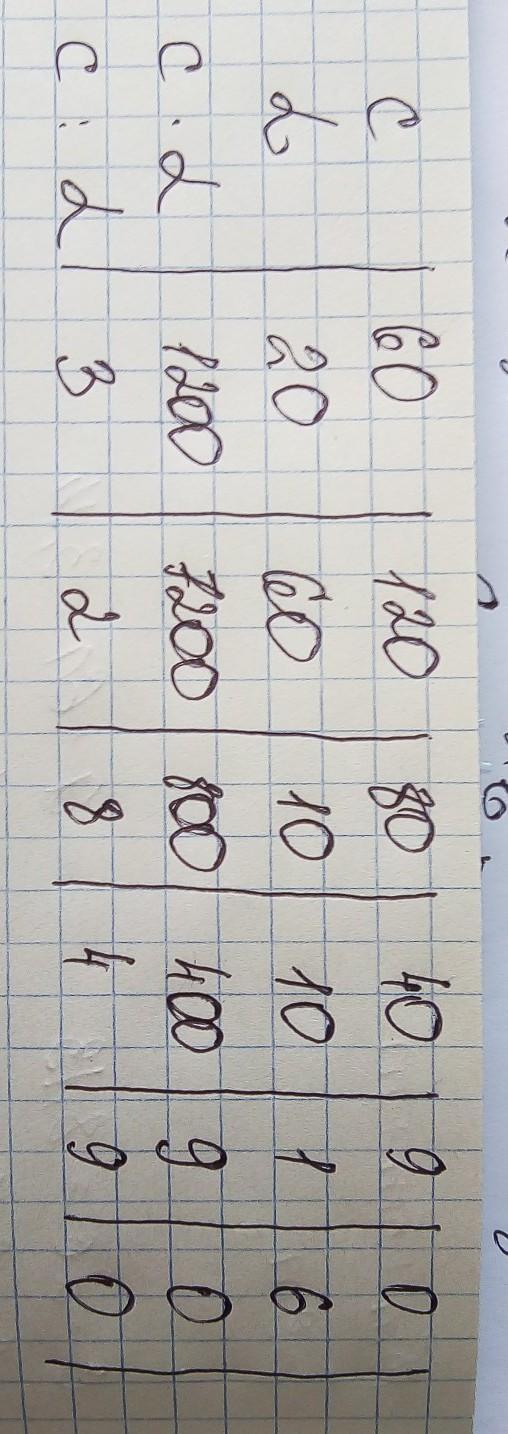 c 60 120 80 40 9 0
d 20 60 10 10 1 6
c · d 1200 7200 800 400 9 0
c : d 3 2 8 4 9 0